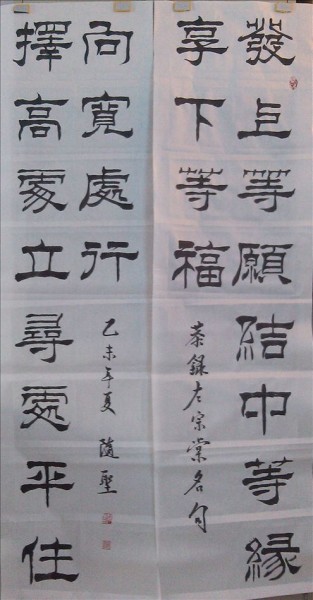 發上等願結中等緣
享下等福
恭錄左宗棠名句
擇高處立尋處平住
向寬處行
乙未年夏 隨聖